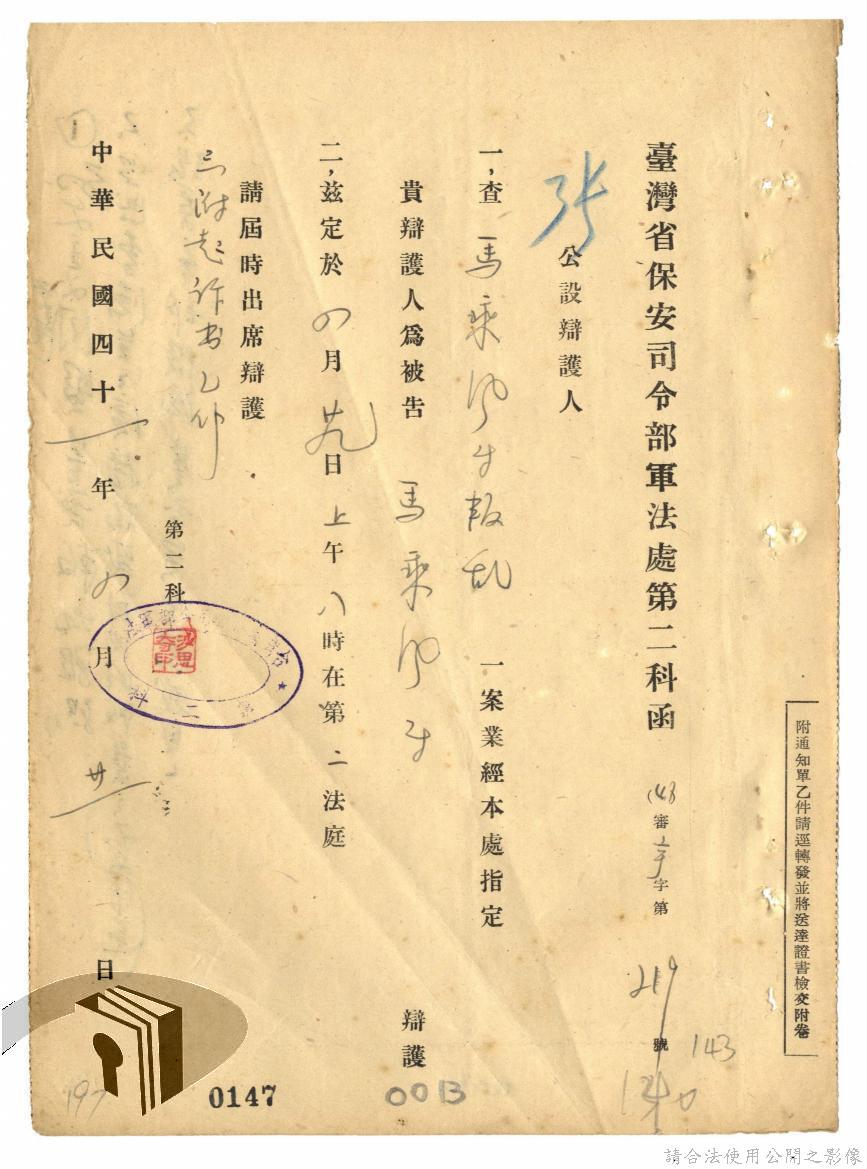 臺灣省保安司令部軍法處第二科函
審 字第 219 號
附通知單乙件請逕轉發並將送達證書檢交附卷
張
公設辯護人
一，查 馬乘風等叛乱 一案業經本處指定
貴辯護人為被告 馬乘風等 辯護
二，茲定於 四月廿九日上午八時在第二法庭
請屆時出席辯護
三附起訴書乙件
第二科
第二科
中華民國四十一年四月廿一日
143
140
197
0147
0013
請合法使用公開之影像